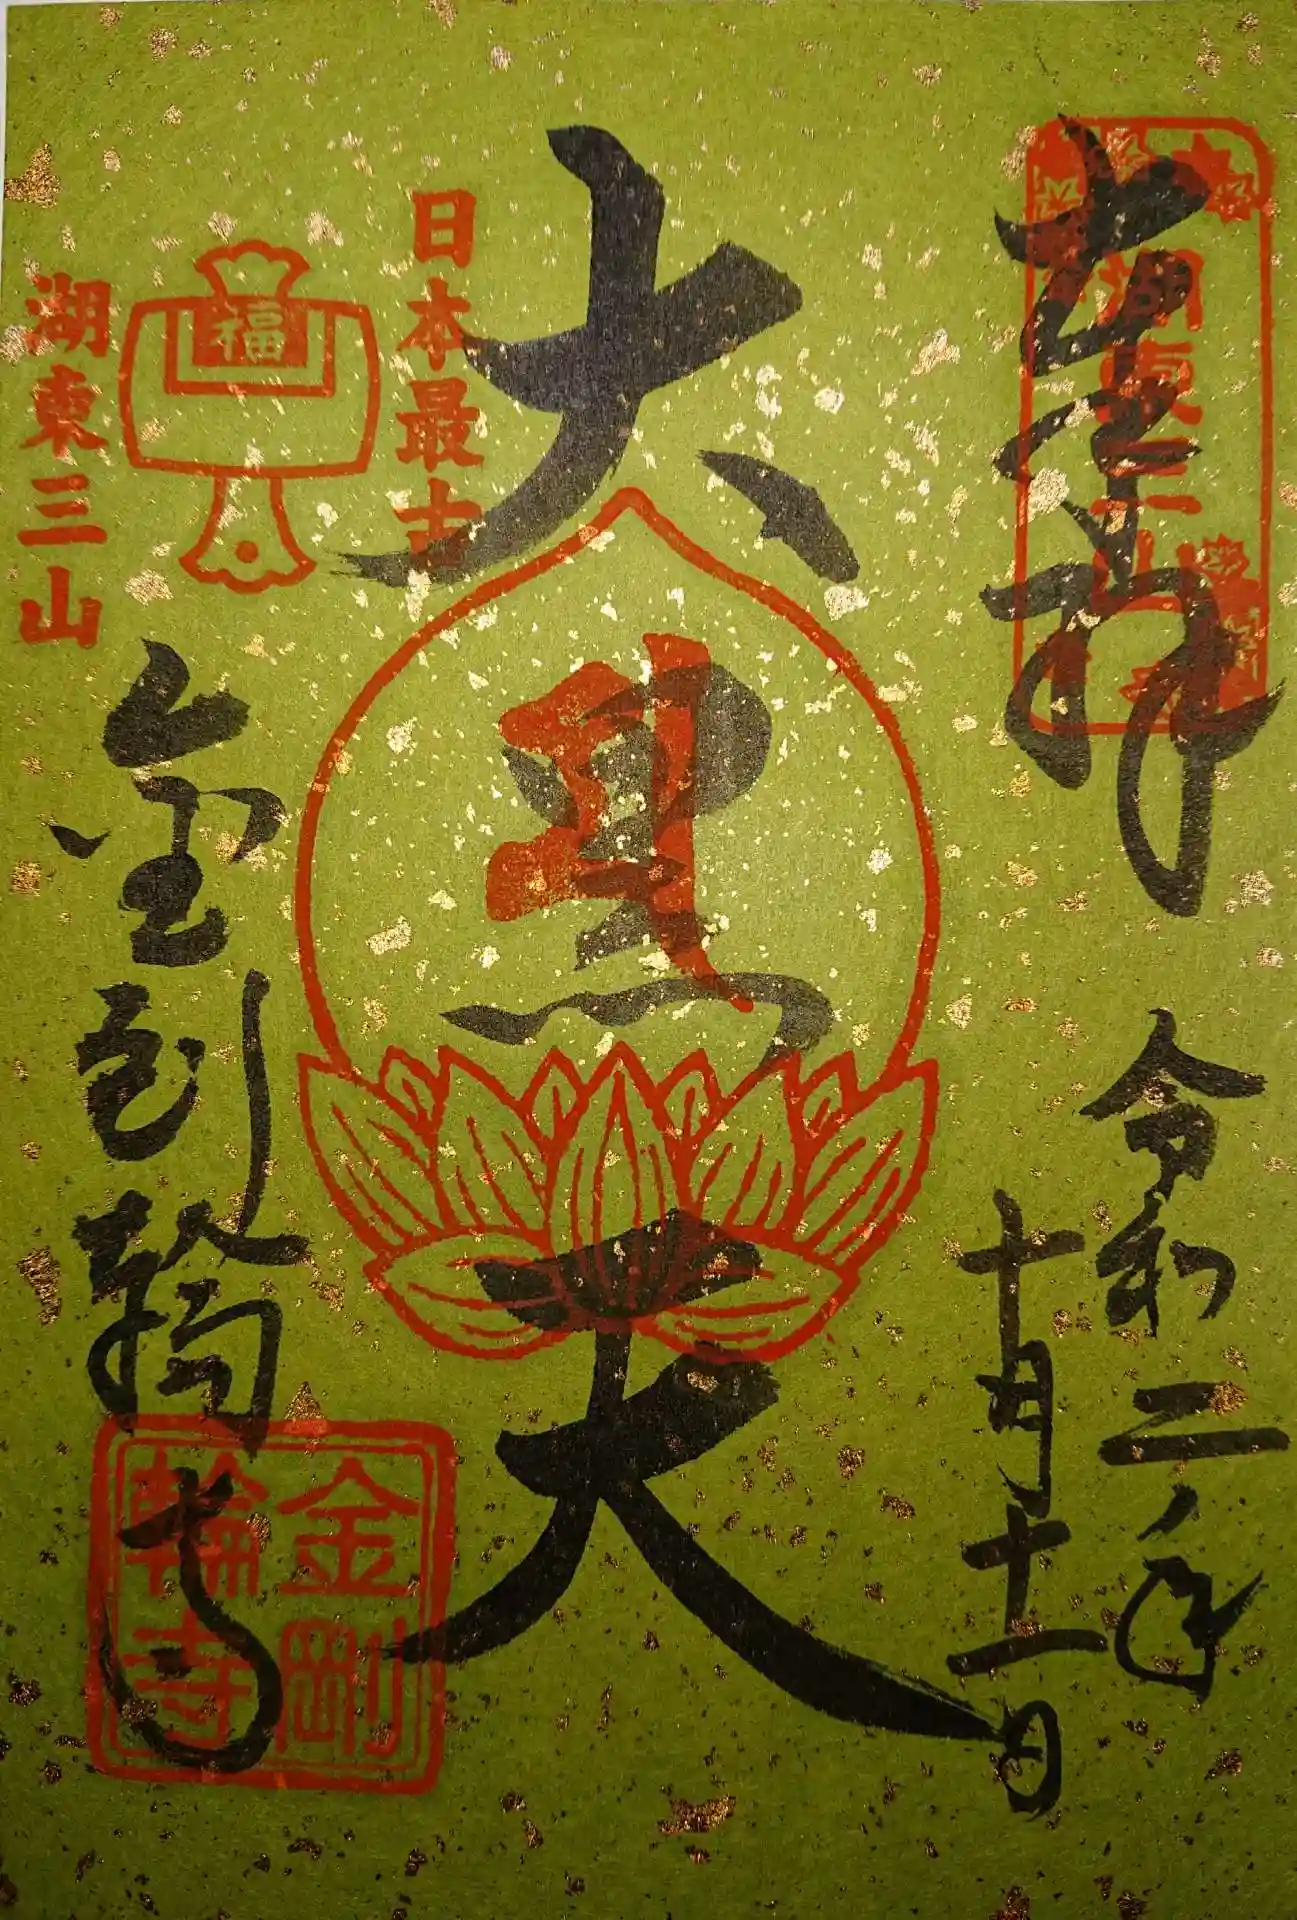 奉拝
湖東三山
令和二年
十月十一日
大黒天
日本最古
福
湖東三山
金剛輪寺
金剛
輪寺